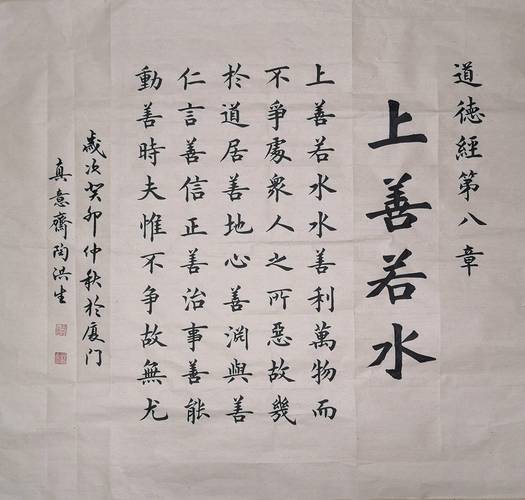 道德經第八章
上善若水
上善若水水善利萬物而
不爭處衆人之所惡故幾
於道居善地心善淵與善
仁言善信正善治事善能
動善時夫惟不争故無尤
歲次癸卯仲秋於厦门
真意齋陶洪生